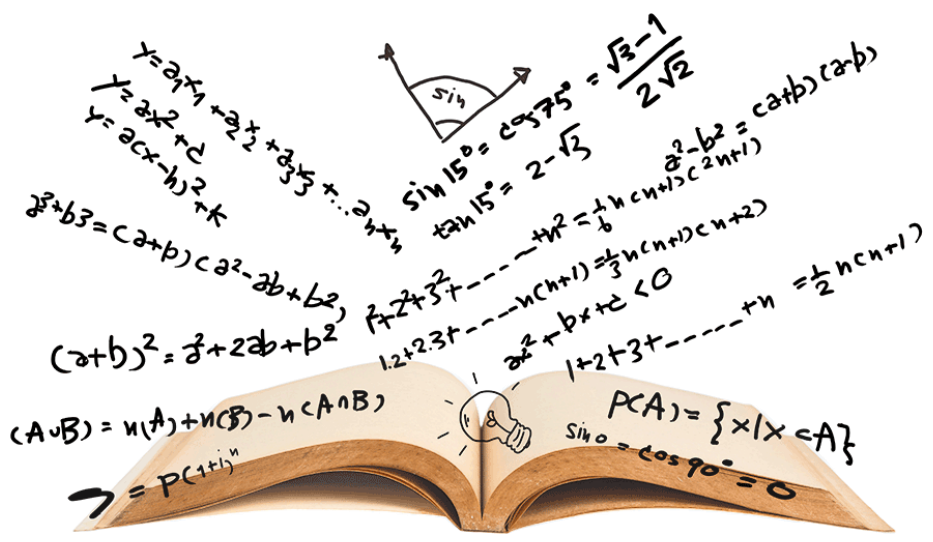 y=a₁x₁+a₂x₂+a₃x₃+...aₙxₙ
y=ax²+c
y=a(x-h)²+k
a³+b³=(a+b)(a²-ab+b²)
(a+b)²=a²+2ab+b²
sin
sin15°=cos75°=√3-1/2√2
tan15°=2-√3
a²-b²=(a+b)(a-b)
1²+2²+3²+-----+n²=1/6n(n+1)(2n+1)
1.2+2.3+----n(n+1)=1/3n(n+1)(n+2)
ax²+bx+c<0
1+2+3+-----+n=1/2n(n+1)
(A∪B)=n(A)+n(B)-n(A∩B)
=P(1+i)ⁿ
P(A)={x|x⊂A}
sin0=cos90°=0